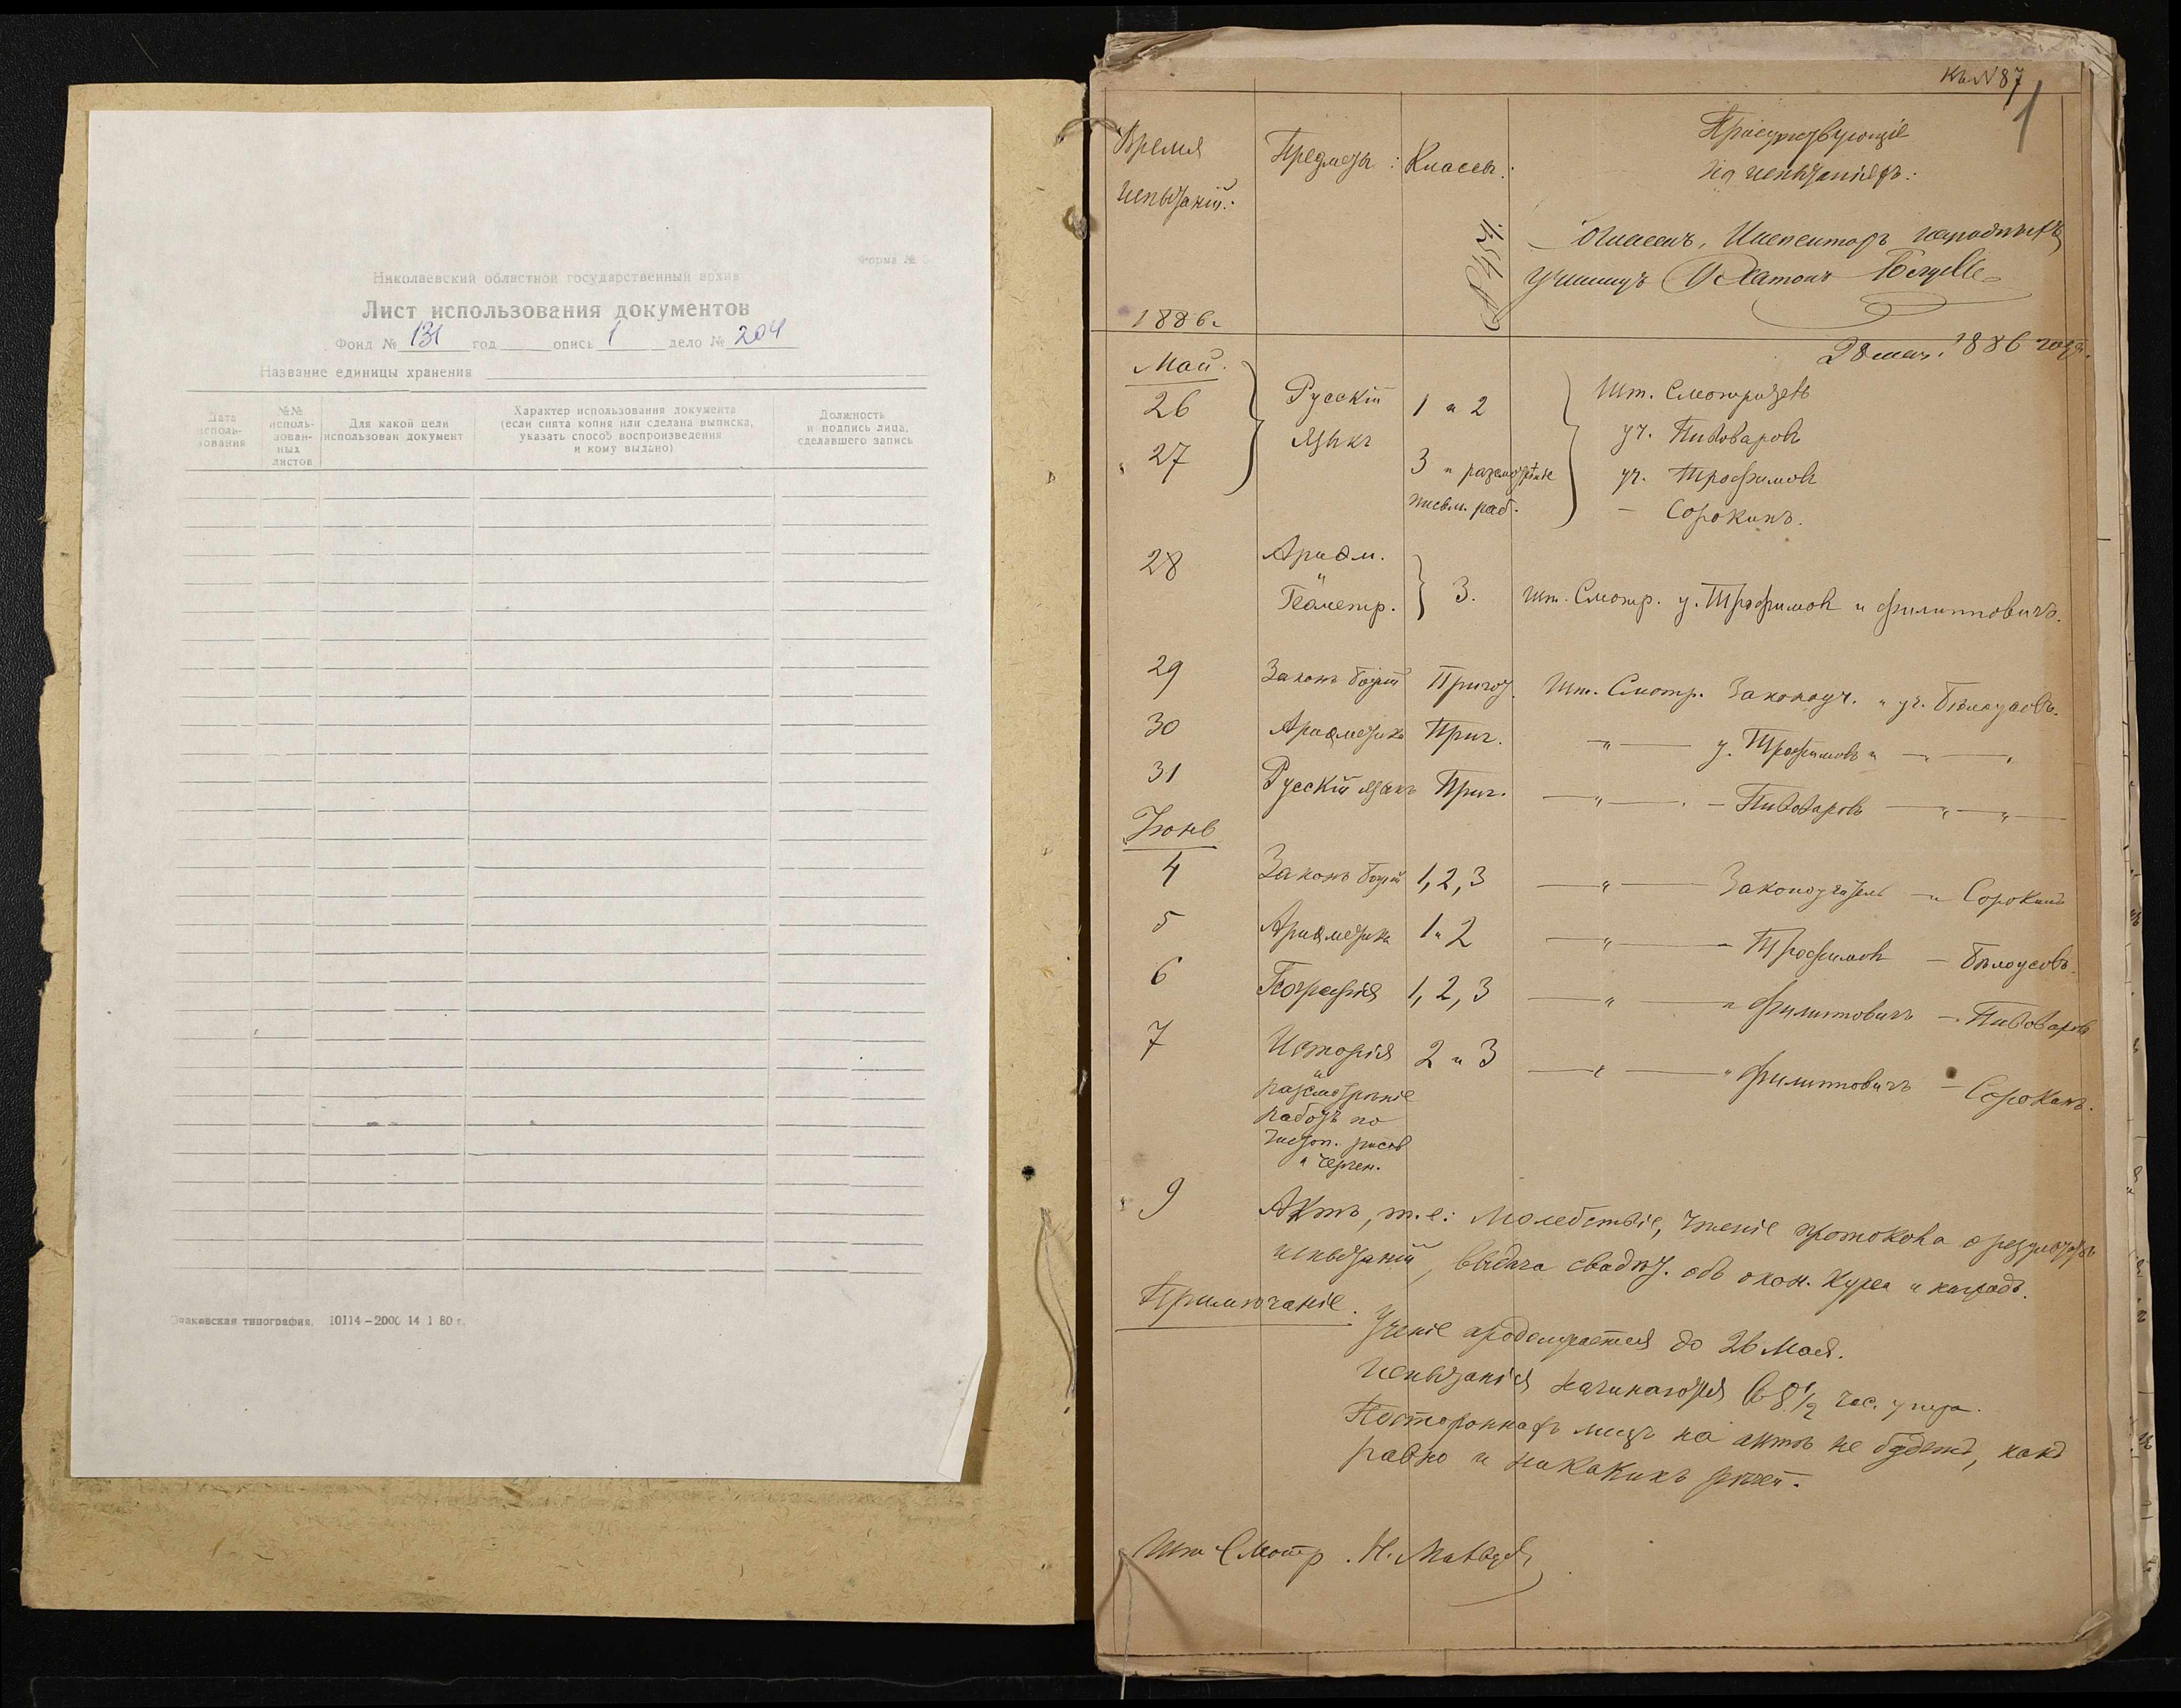 Форма №
Николаевский областной государственный архив
Лист использования документов
Фонд № 131 год опись 1 дело № 204
Название единицы хранения
Дата использования
№№ использованных листов
Для какой цели использован документ
Характер использования документа (если снята копия или сделана выписка, указать способ воспроизведения и кому выдано)
Должность и подпись лица, сделавшего запись
Очаковская типография. 10114—2000 14 1 80 г.
Къ N 87
1
Время испытаній:
Предметы:
Классы:
Присутствующіе
на испытаніяхъ:
Согласенъ, Инспекторъ народныхъ
училищъ
28 мая 1886 года.
1886 г.
Май.
26
27
Русскій
языкъ
1 и 2
3 и разсмотрѣніе
письм. раб.
Шт. Смотритель
уч. Пивоваровъ
уч. Трофимовъ
— Сорокинъ.
28 Ариѳм. и Геометр. 3. Шт. Смотр. у. Трофимовъ и Филипповичъ.
29 Законъ божій Пригот. Шт. Смотр. Законоуч. и уч. Бѣлоусовъ.
30 Ариѳметика Приг. —"— у. Трофимовъ и —"—
31 Русскій языкъ Приг. —"— — Пивоваровъ —"—"—
Іюнь
4 Законъ божій 1, 2, 3 —"— Законоучитель — и Сорокинъ
5 Ариѳметика 1 и 2 —"— — Трофимовъ — Бѣлоусовъ.
6 Географія 1, 2, 3 —"— " Филипповичъ — Пивоваровъ
7 Исторія 2 и 3 —"— " Филипповичъ — Сорокинъ.
и
разсмотрѣніе
работъ по
чистоп. рисов
и черчен.
9 Актъ, т. е: молебствіе, чтеніе протокола о результатѣ
испытаній, выдача свидѣт. объ окон. курса и наградъ.
Примѣчаніе.
Ученіе продолжается до 26 Мая.
Испытанія начинаются въ 8 1/2 час. утра.
Постороннихъ лицъ на актѣ не будетъ, какъ
равно и никакихъ рѣчей.
Шт Смотр. Н.